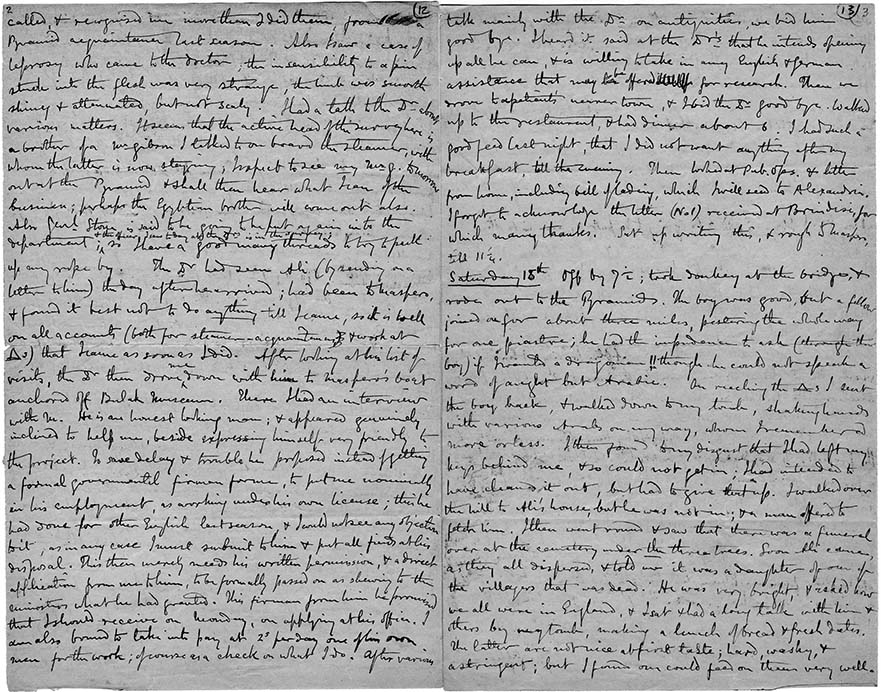 2 (12)
called & recognised me more than I did them from a
Pyramid acquaintance last season. Also saw a case of
leprosy who came to the doctor, the insensibility to a pin
stuck into the flesh was very strange, the limb was smooth
shiny & attenuated, but not scaly. I had a talk to the Dr. about
various matters. It seems that the active head of the survey here is
a brother of a Mr Gibson I talked to on board the steamer, with
whom the latter is now staying; I expect to see my Mr G. tomorrow
out at the Pyramid & shall then hear what I can of the
business; perhaps the Egyptian brother will come out also.
Also Genl Stone is said to be going to be put again into the
department
so I have a good many threads to try & pull
up my rope by. The Dr had seen Ali (by sending on a
letter to him) the day after he arrived; had been to Maspero,
& found it best not to do anything till I came, so it is well
on all accounts (both for steamer-acquaintances & work at
Δs) that I came as soon as I did. After looking at his list of
visits, the Dr then drove me down with him to Maspero's boat
anchored off Bulak Museum. There I had an interview
with M. He is an honest looking man; & appeared genuinely
inclined to help me, beside expressing himself very friendly to
the project. To save delay & trouble he proposed instead of getting
a formal governmentl firman for me, to put me nominally
in his employment, as working under his own license; this he
had done for other English last season, & I could not see any objection
to it, as in any case I must submit to him & put all finds at his
disposal. This then merely needs his written permission, & a direct
application from me to him, to be formally passed on as shewing to the
ministers what he had granted. This firman from him he promised
that I should receive on Monday, on applying at his office. I
am also bound to take into pay at 2s per day one of his own
men for the work; of course as a check on what I do. After various
(13) 3
talk mainly with the Dr. on antiquities, we bid him
good bye. I heard it said at the Dr's that he intends opening
up all he can, & is willing to take in any English & German
assistance that may offer for research. Then we
drove to a patient's nearer town, & I bid the Dr good bye. Walked
up to the restaurant, & had dinner about 6. I had such a
good feed last night, that I did not want anything after my
breakfast, till the evening. Then looked at Pub. Ops. & letter
from home, including bill of lading, which I will send to Alexandria.
I forgot to acknowledge the letter (No 1) received at Brindisi, for
which many thanks. Sat up writing this, & rough to Maspero,
till 11¼.
Saturday 18th Off by 7½; took donkey at the bridge, &
rode out to the Pyramids. The boy was good, but a fellow
joined on for about three miles, pestering the whole way
for one piastre; he had the impudence to ask (through the
boy) if I wanted a dragoman!! though he could not speak a
word of aught but Arabic. On reaching the Δs I sent
the boy back, & walked down to my tomb, shaking hands
with various Arabs on my way, whom I remembered
more or less. I then found to my disgust that I had left my
keys behind me, & so could not get in; I had intended to
have cleaned it out, but had to give that up. I walked over
the hill to Ali's house, but he was not in; & a man offered to
fetch him. I then went round & saw that there was a funeral
over at the cemetery under the three trees. Soon Ali came,
as they all dispersed, & told me it was a daughter of one of
the villagers that was dead. He was very bright, & asked how
we all were in England, & I sat & had a long talk with him &
others by my tomb, making a lunch of bread & fresh dates.
The latter are not nice at first taste; hard, &
astringent; but I found one could feed on them very well.